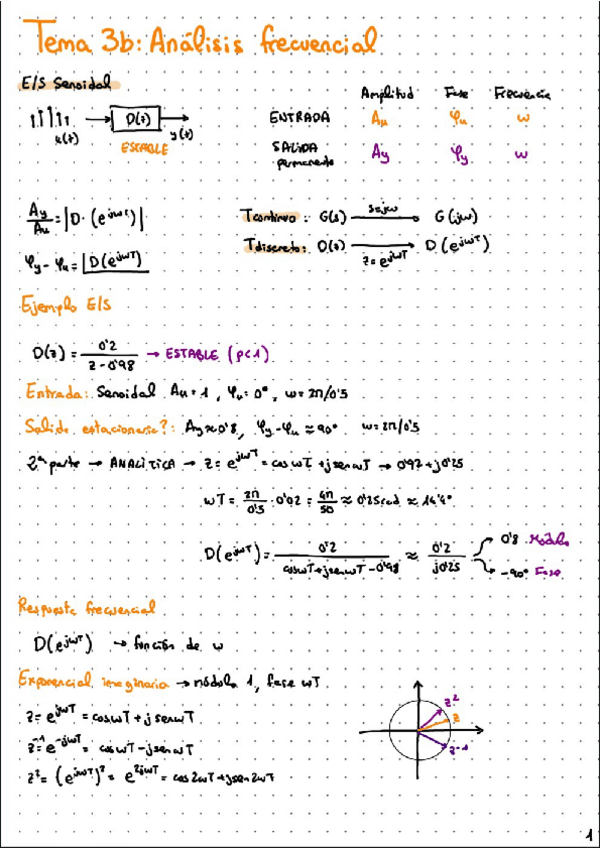 Tema 3b: Análisis frecuencial
E/S Senoidal
Amplitud Fase Frecuencia
u(z) D(z) y(z)
ESTABLE
ENTRADA Au φu w
SALIDA permanente Ay φy w
Ay/Au = |D·(e^jwT)|
Tcontinuo: G(s) s=jw → G(jw)
φy - φu = ⌊D(e^jwT)
Tdiscreto: D(z) z=e^jwT → D(e^jwT)
Ejemplo E/S
D(z) = 0'2/(z-0'98) → ESTABLE (p<1)
Entrada: Senoidal Au=1, φu=0°, w=2π/0'5
Salida estacionaria?: Ay≈0'8, φy-φu≈90° w=2π/0'5
2ª parte → ANALÍTICA → z=e^jwT = cos wT + j sen wT → 0'97+j0'25
wT = 2π/0'5 · 0'02 = 4π/50 ≈ 0'25rad ≈ 14'4°
D(e^jwT) = 0'2/(coswT+jsenwT-0'98) ≈ 0'2/j0'25 → 0'8 Módulo
→ -90° Fase
Respuesta frecuencial
D(e^jwT) → función de w
Exponencial imaginaria → módulo 1, fase wT
z = e^jwT = coswT + j senwT
z^-1 = e^-jwT = coswT - jsenwT
z² = (e^jwT)² = e^2jwT = cos2wT + jsen2wT
z²
z
z^-1
1